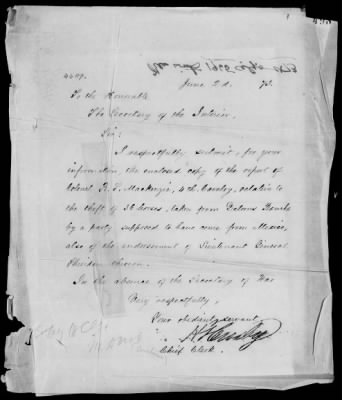 4609.
June 2d. 73.
To the Honorable
The Secretary of the Interior.
Sir:
I respectfully submit, for your
information, the enclosed copy of the report of
Colonel R. S. Mackenzie, 4th Cavalry, relative to
the theft of 36 horses, taken from Ranche
by a party supposed to have come from Mexico,
also of the endorsement of Lieutenant General
Sheridan thereon.
In the absence of the Secretary of War
Very respectfully,
Your obedient servant
H. T. Crosby
Chief Clerk.